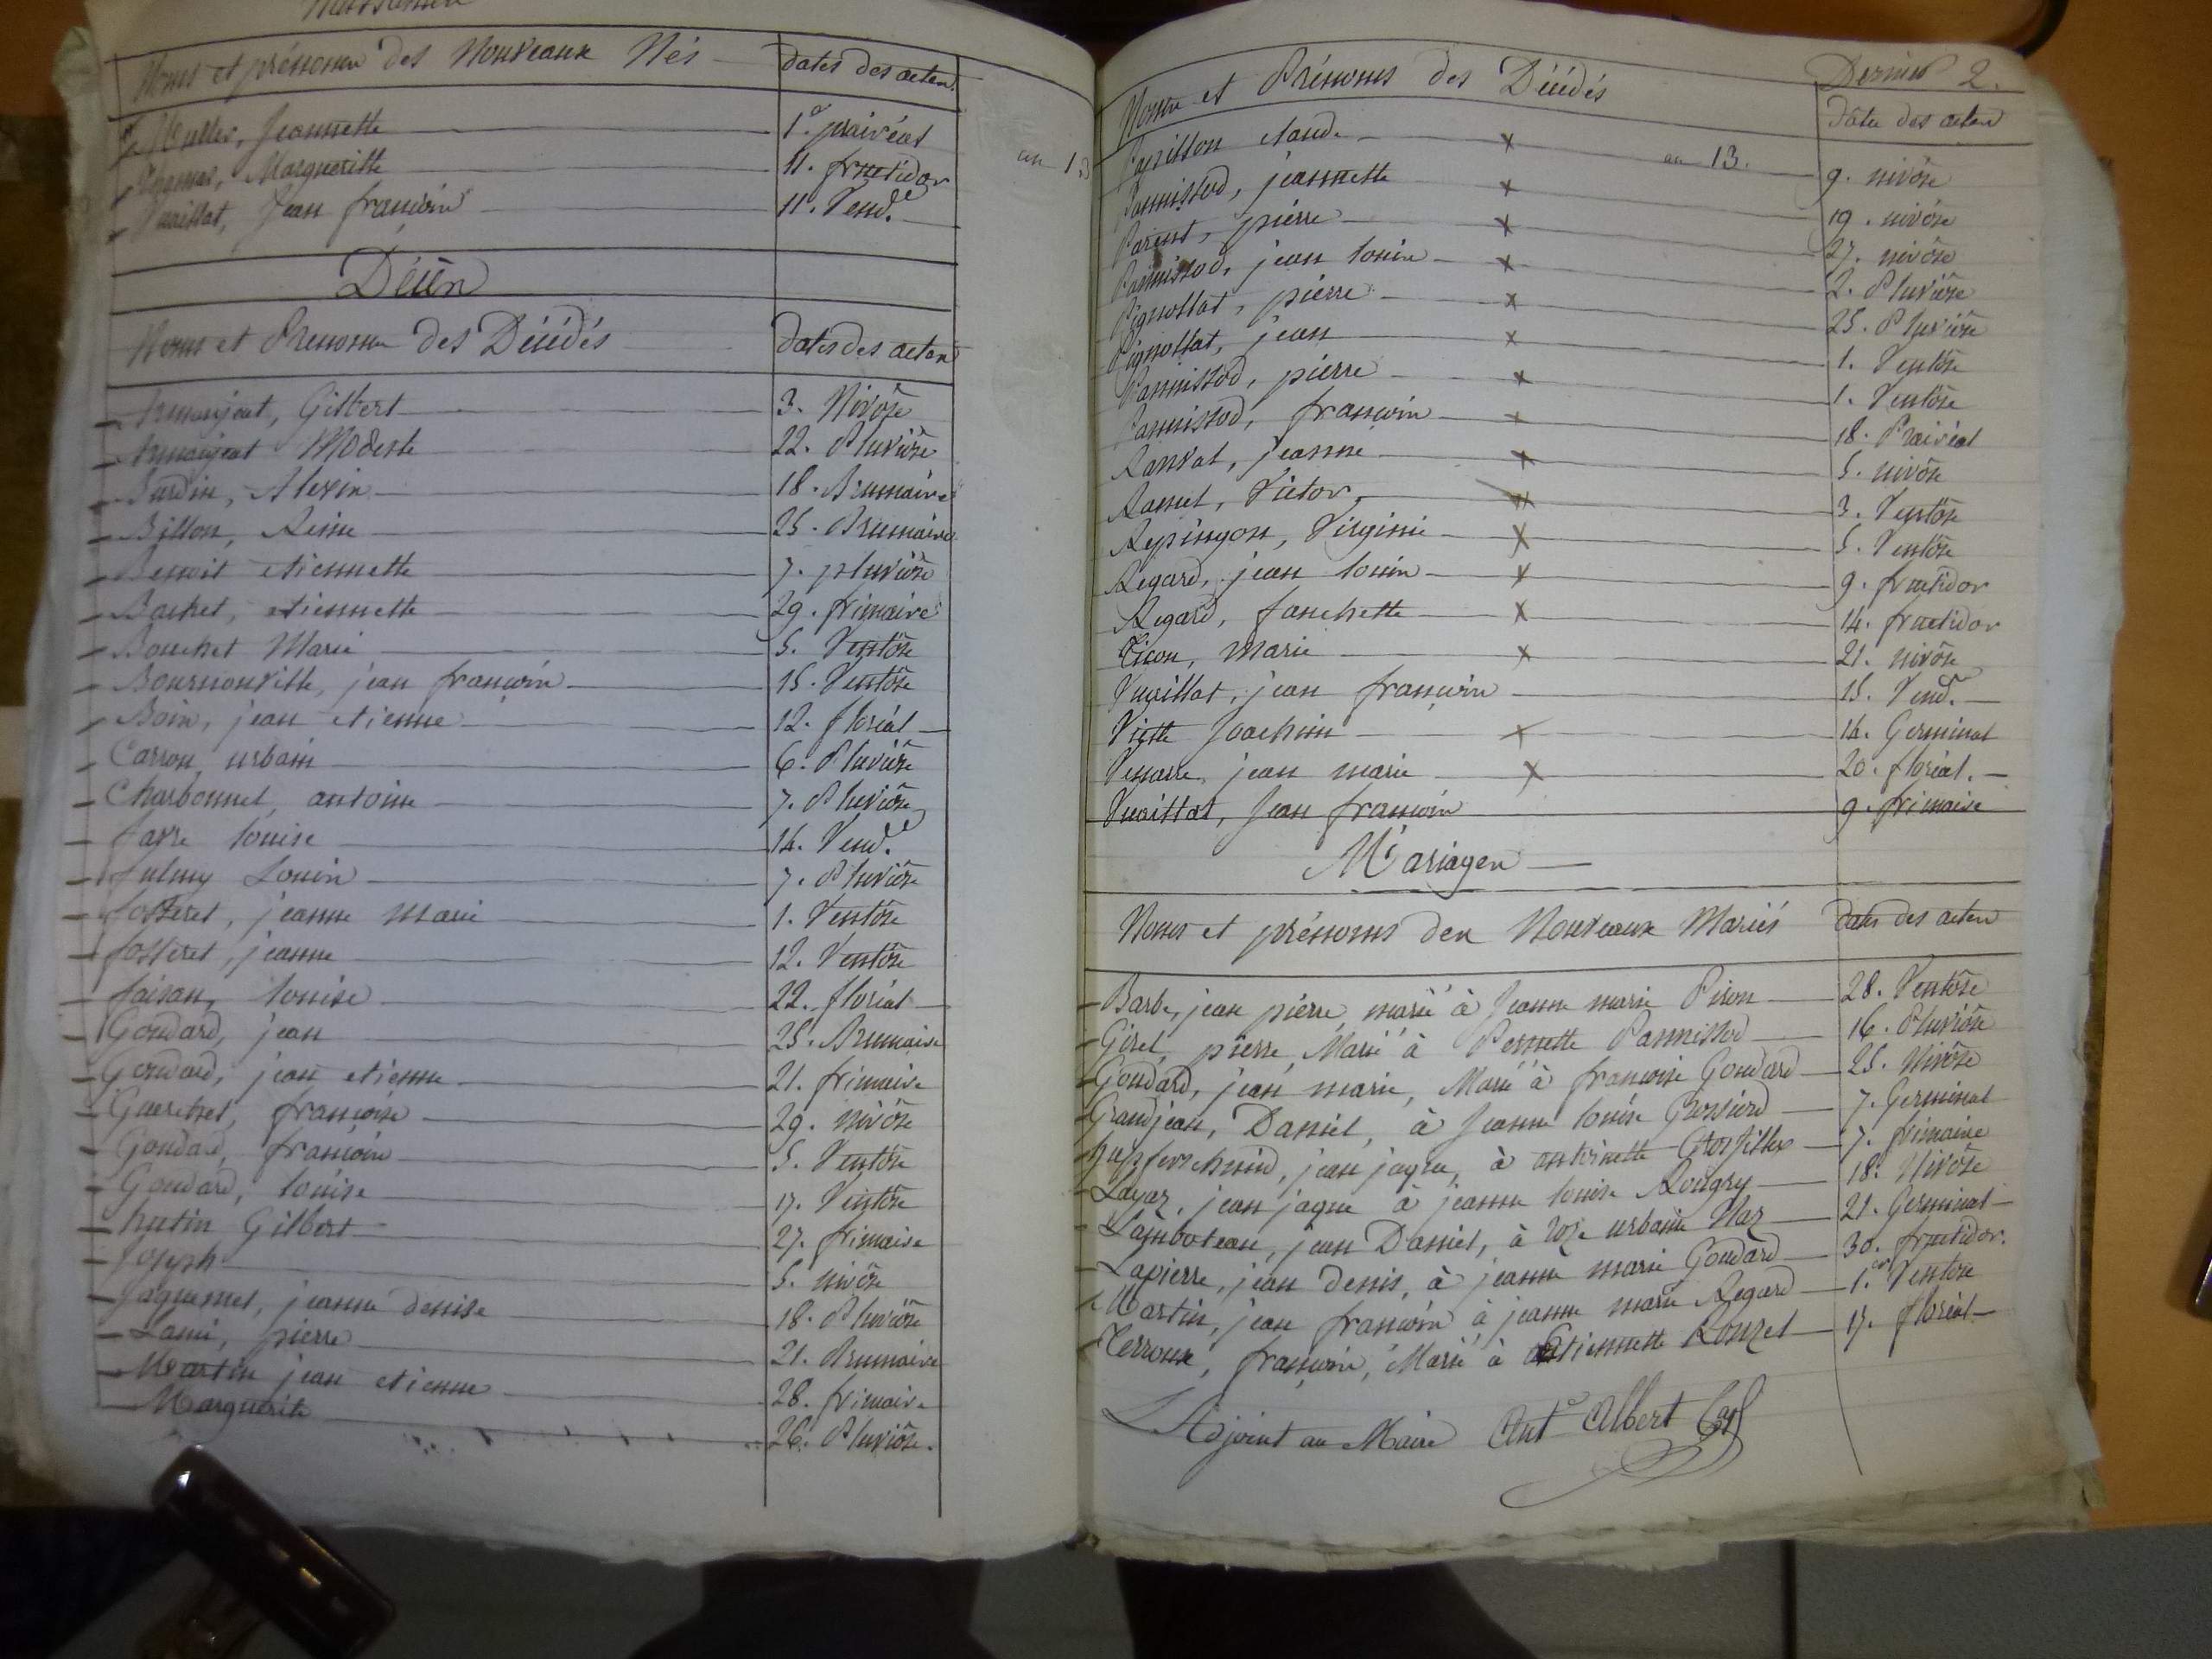 Noms et prénoms des Nouveaux Nés dates des actes
Muller, Jeannette 1er prairéal
Thomas, Margueritte 11. fructidor
Vuaillat, Jean françois 11. Vend.re
Décès
Noms et Prenoms des Décédés dates des actes
Armanjeat, Gilbert 3. Nivôse
Armanjeat Modeste 22. Pluviôse
Burdin, Alexis 18. Brumaire
Billon, Reine 25. Brumaire
Benoit etiennette 7. pluviôse
Bachet, etiennette 29. frimaire
Bouchet Marie 5. Ventôse
Bournonville, jean françois 15. Ventôse
Boin, jean etienne 12. floréal
Carron urbain 6. Pluviôse
Charbonnel, antoine 7. Pluviôse
favre louise 14. Vend.re
fulmy Louis 7. Pluviôse
fosseret, jeanne marie 1. Ventôse
fosseret, jeanne 12. Ventôse
faisan, louise 22. floréal
Goudard, jean 25. Brumaire
Goudard, jean etienne 21. frimaire
Guerchet, françoise 29. nivôse
Goudard, françois 5. Ventôse
Goudard, louise 17. Ventôse
hutin Gilbert 27. frimaire
Joseph 5. nivôse
Jaquemet, jeanne denise 18. Pluviôse
Lami, pierre 21. Brumaire
Martin jean etienne 28. frimaire
Marguerite 26. Pluviôse.
an 13
Dernier 2.
Noms et Prénoms des Décédés date des actes
an 13.
Papillon claude 9. nivôse
Pannissod, jeannette 19. nivôse
Parent, pierre 27. nivôse
Pannissod, jean louis 2. Pluviôse
Pignollat, pierre 25. Pluviôse
Pignollat, jean 1. Ventôse
Pannissod, pierre 1. Ventôse
Pannissod, françois 18. Prairéal
Ranvat, jeanne 5. nivôse
Ramel, Victor 3. Ventôse
Repingon, Virginie 5. Ventôse
Regard, jean louis 9. fructidor
Regard, fanchette 14. fructidor
Ticon, marie 21. nivôse
Vuaillat, jean françois 15. Vend.re
Viette Joachim 14. Germinal
Venarre, jean marie 20. floréal.
Vuaillat, Jean françois 9. frimaire
Mariages
Noms et prénoms des Nouveaux Mariés dates des actes
Barbe, jean pierre marié à Jeanne marie Piron 28. Ventôse
Girel, pierre, Marié à Pernette Pannissod 16. Pluviôse
Goudard, jean marie, Marié à françoise Goudard 25. Nivôse
Grandjean, Daniel, à Jeanne louise Grossiord 7. Germinal
hupferschmid, jean jaque, à antoinette Grosfillex 7. frimaire
Layaz, jean jaque à jeanne louise Rougry 18. Nivôse
Lamboteau, jean Daniel, à roze urbanie Naz 21. Germinal
Lapierre, jean denis, à jeanne marie Goudard 30. fructidor.
Martin, jean françois à jeanne marie Regard 1.er Ventose
Terroux, françois, Marié à Etiennette Rouzet 17. floréal
L'Adjoint au Maire Ant.e Albert